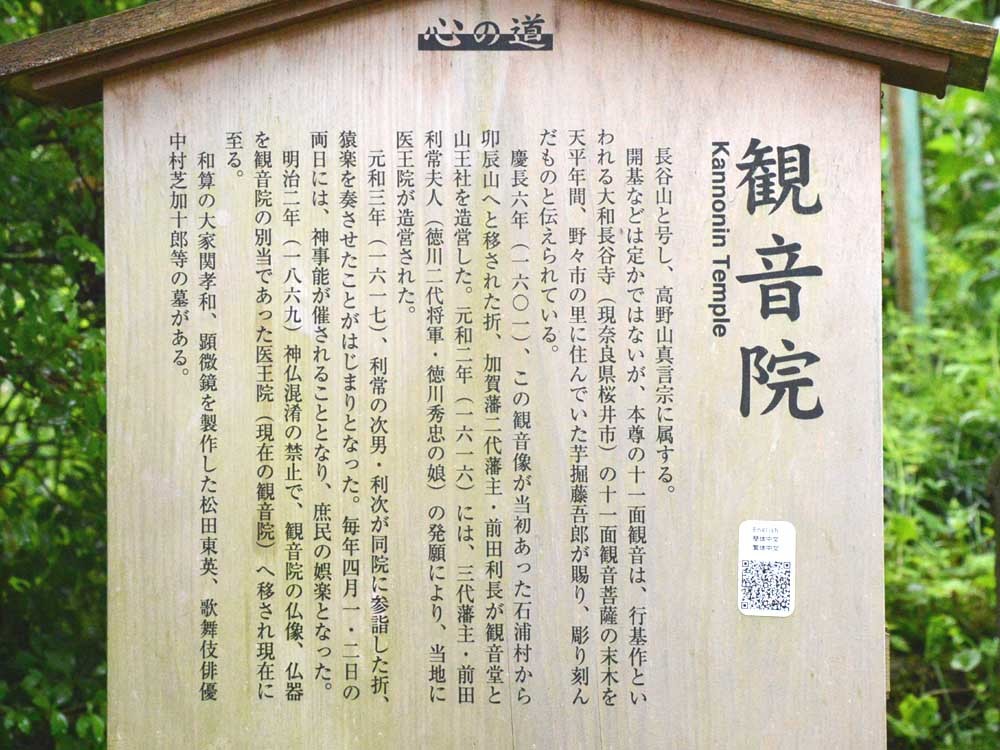 心の道
観音院
Kannonin Temple
長谷山と号し、高野山真言宗に属する。
開基などは定かではないが、本尊の十一面観音は、行基作とい
われる大和長谷寺（現奈良県桜井市）の十一面観音菩薩の末木を
天平年間、野々市の里に住んでいた芋掘藤吾郎が賜り、彫り刻ん
だものと伝えられている。
慶長六年（一六〇一）、この観音像が当初あった石浦村から
卯辰山へと移された折、加賀藩二代藩主・前田利長が観音堂と
山王社を造営した。元和二年（一六一六）には、三代藩主・前田
利常夫人（徳川二代将軍・徳川秀忠の娘）の発願により、当地に
医王院が造営された。
元和三年（一六一七）、利常の次男・利次が同院に参詣した折、
猿楽を奏させたことがはじまりとなった。毎年四月一・二日の
両日には、神事能が催されることとなり、庶民の娯楽となった。
明治二年（一八六九）神仏混淆の禁止で、観音院の仏像、仏器
を観音院の別当であった医王院（現在の観音院）へ移され現在に
至る。
和算の大家関孝和、顕微鏡を製作した松田東英、歌舞伎俳優
中村芝加十郎等の墓がある。
English
简体中文
繁体中文